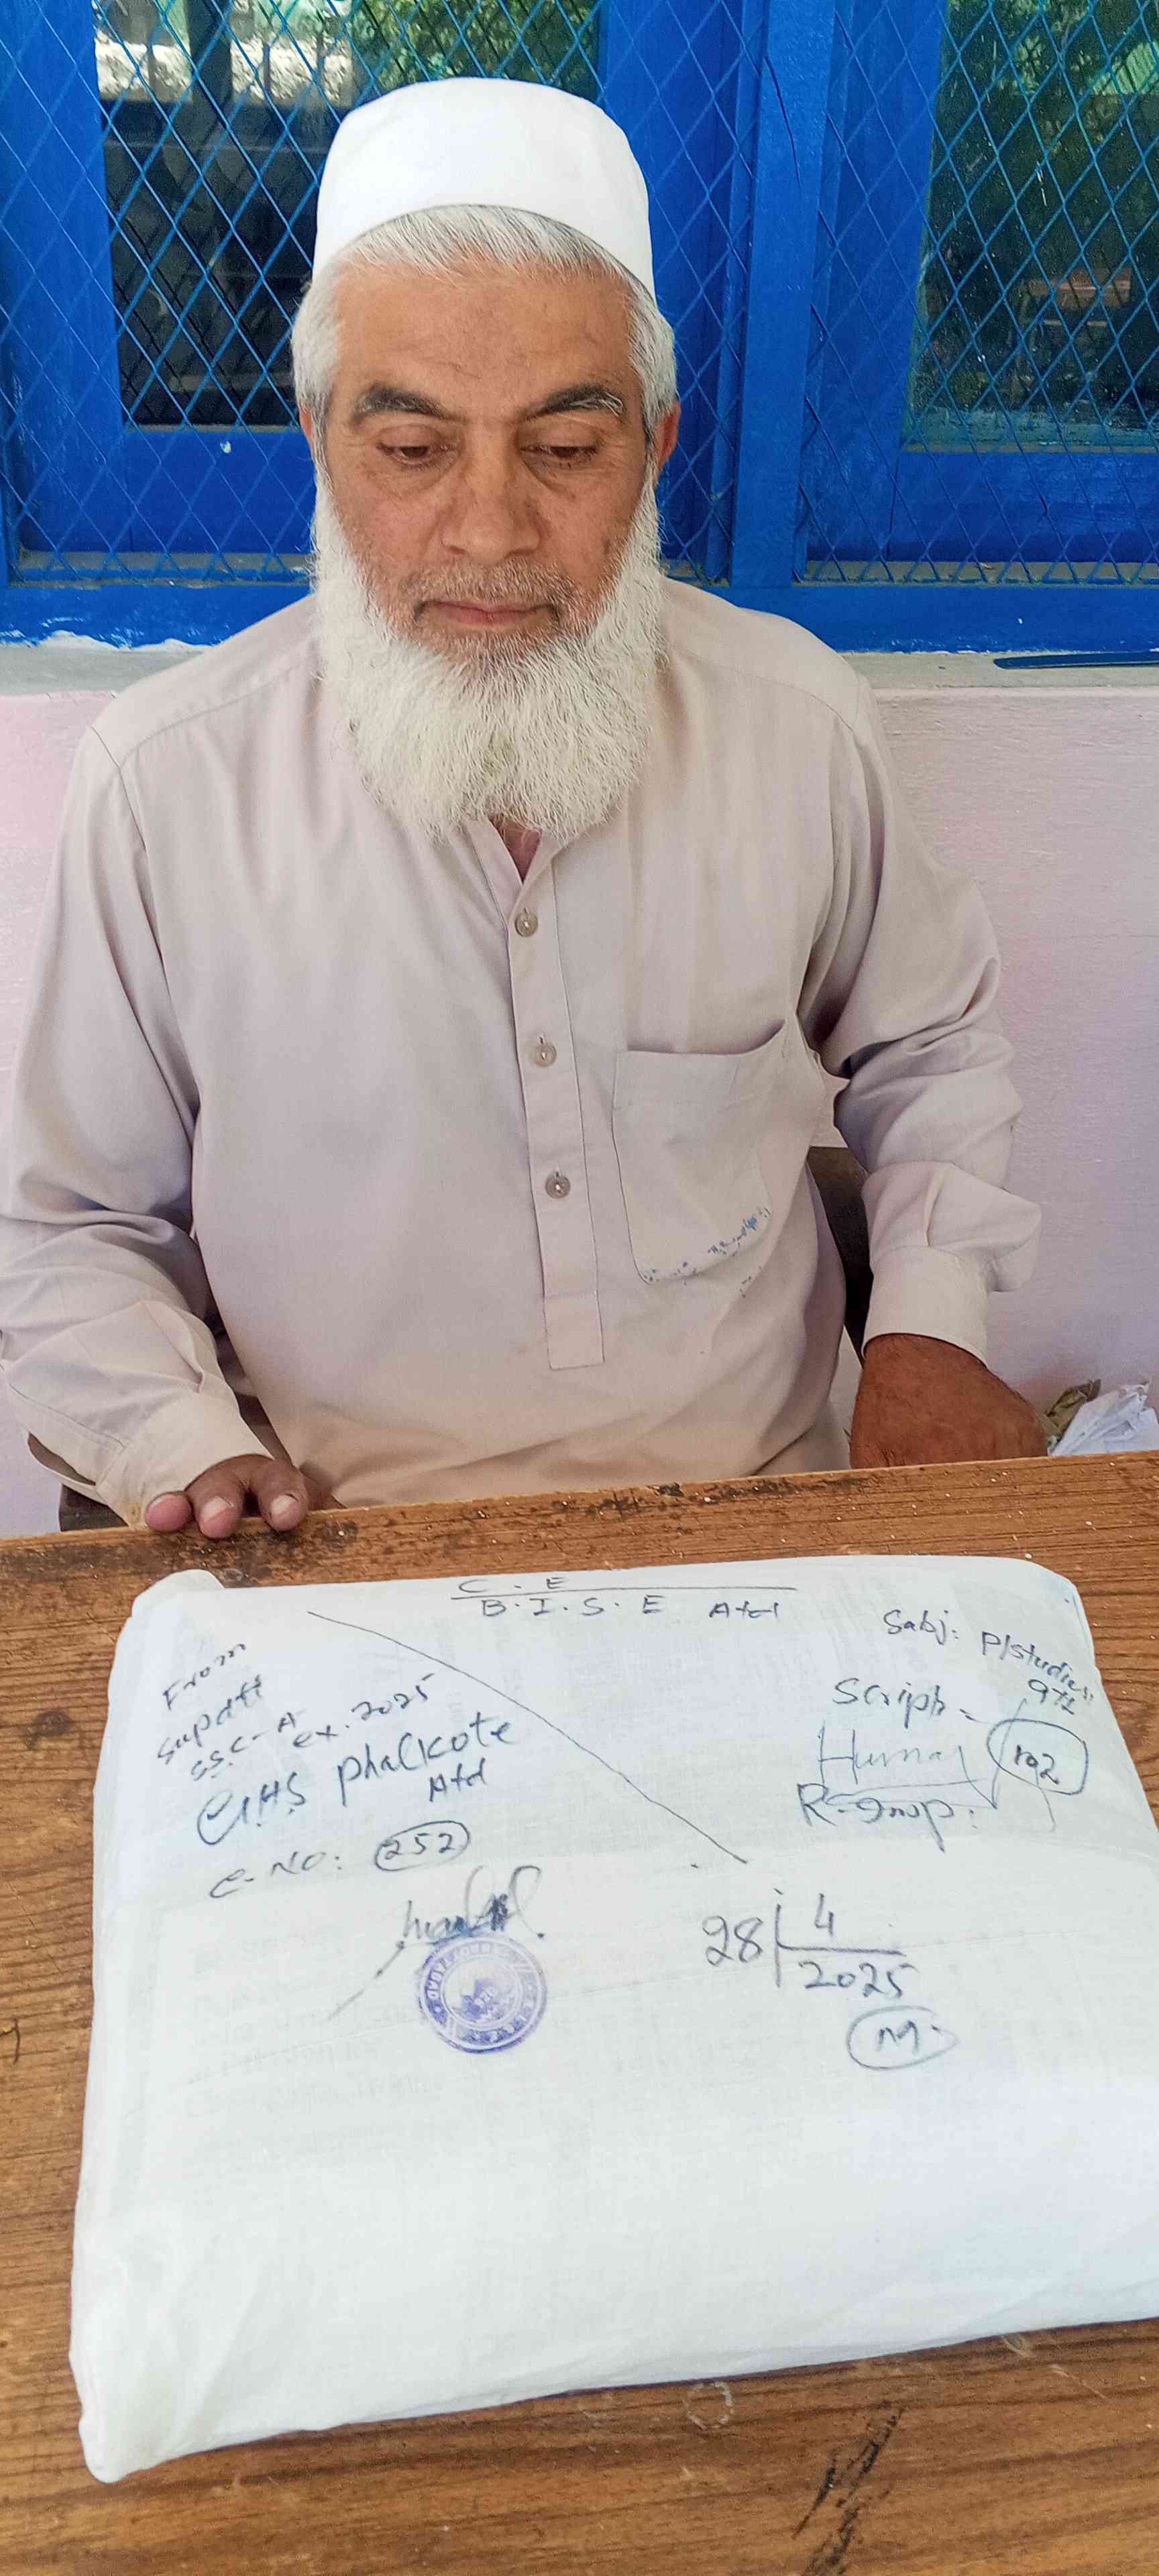 C. E
B.I.S.E Atd
From
Supdtt
S.S.C-A ex. 2025
GHS phalkote
Atd
C-No: 252
Subj: P/studies
9th
Script =
102
28/4/2025
M